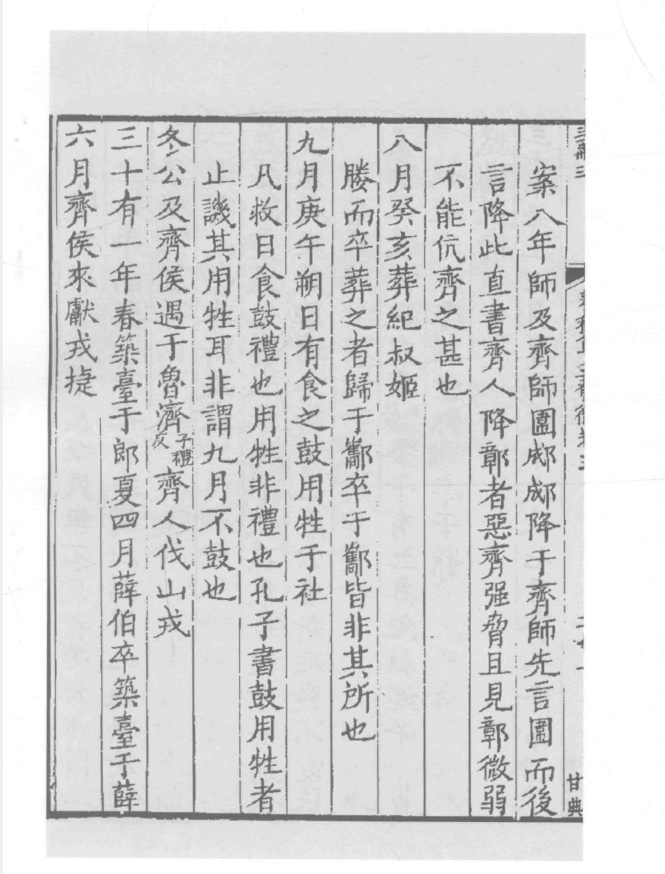 案八年師及齊師圍郕郕降于齊師先言圍而後
言降此直書齊人降鄣者惡齊强脅且見鄣微弱
不能伉齊之甚也
八月癸亥葬紀叔姬
媵而卒葬之者歸于酅卒于酅皆非其所也
九月庚午朔日有食之鼓用牲于社
凡救日食鼓禮也用牲非禮也孔子書鼓用牲者
止譏其用牲耳非謂九月不鼓也
冬公及齊侯遇于魯濟子禮反齊人伐山戎
三十有一年春築臺于郎夏四月薛伯卒築臺于薛
六月齊侯來獻戎捷
甘典